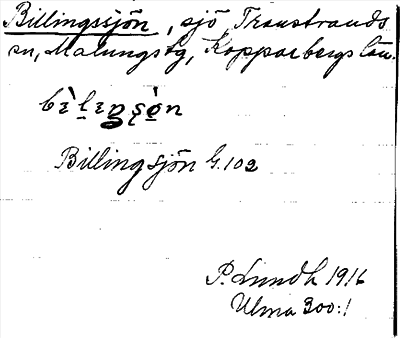 Billingssjön, sjö Transtrands
sn, Malungs tg, Kopparbergs län.
Billingsjön G.102
P. Lundh 1916
Ulma 300:1